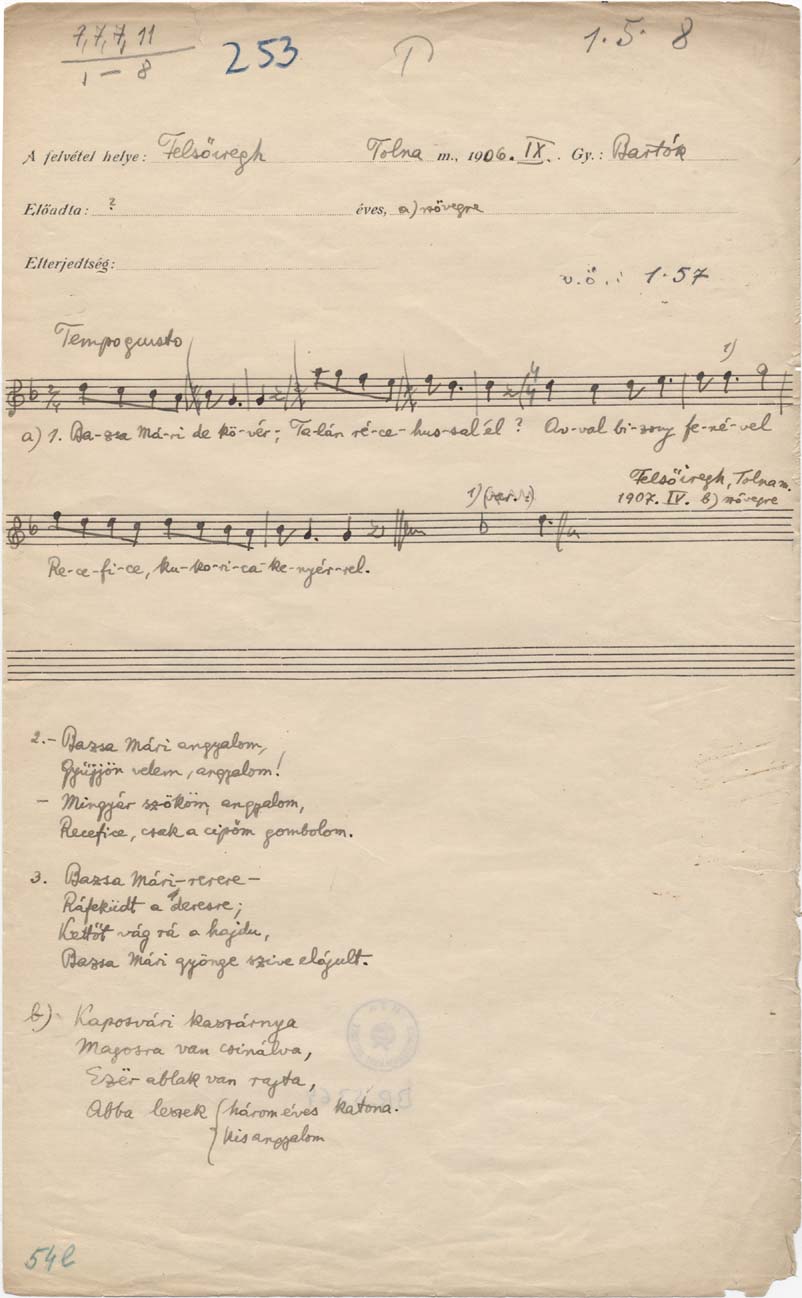 7, 7, 7, 11
1 – 8
253
1. 5. 8
A felvétel helye: Felsőiregh Tolna m., 1906. IX. Gy.: Bartók
Előadta: ? éves, a) nővegre
Elterjedtség:
v.ö.: 1.57
Tempo giusto
1)
a) 1. Ba-zsa Má-ri de kö-vér; Ta-lán ré-ce-hus-sal él? Av-val bi-zony fe-né-vel
Felsőiregh, Tolna m.
1) (var.:) 1907. IV. b) nővegre
Re-ce-fi-ce, ku-ko-ri-ca ke-nyér-rel.
2. – Bazsa Mári angyalom,
Gyűjjön velem, angyalom!
– Mingyár szököm, angyalom,
Recefice, csak a cipőm gombolom.
3. Bazsa Mári – rerere –
Ráfeküdt a deresre;
Kettőt vág rá a hajdu,
Bazsa Mári gyönge szive elájult.
b) Kaposvári kaszárnya
Magosra van csinálva,
Ezër ablak van rajta,
Abba leszek { három éves katona.
} kis angyalom